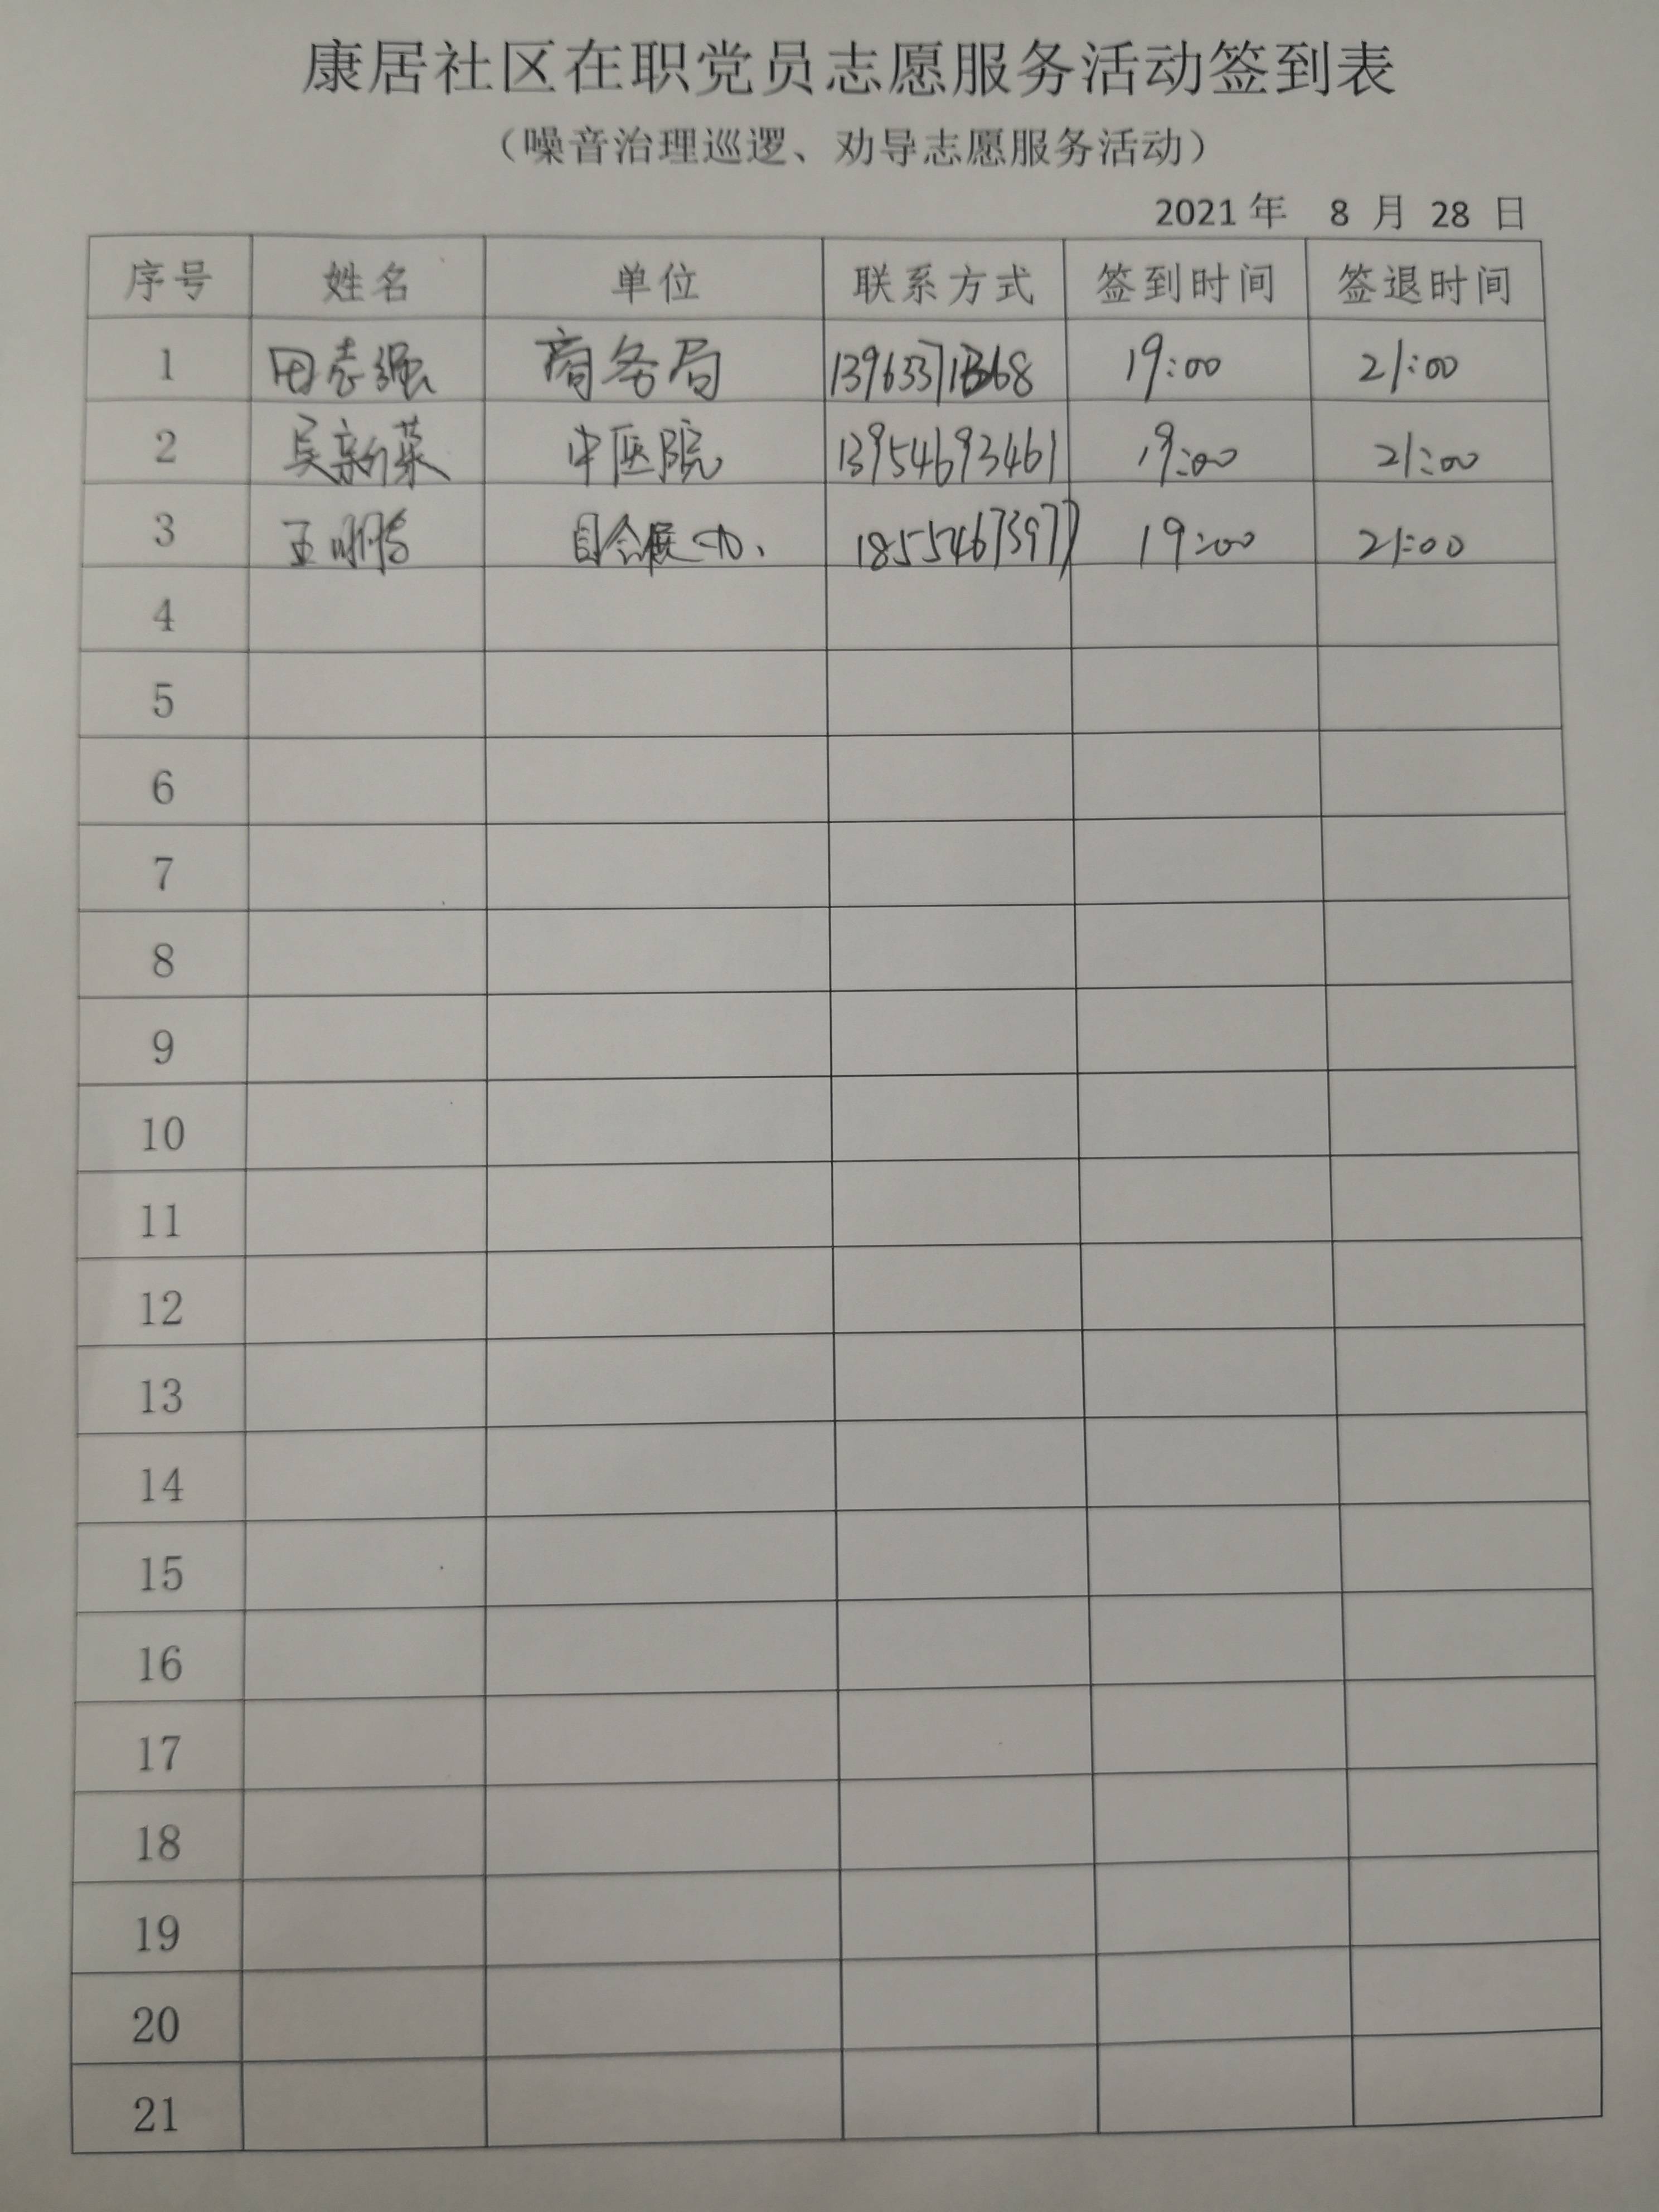 康居社区在职党员志愿服务活动签到表
（噪音治理巡逻、劝导志愿服务活动）
2021 年 8 月 28 日
序号 姓名 单位 联系方式 签到时间 签退时间
1 田志强 商务局 19:00 21:00
2 吴新菜 中医院 13954693461 19:00 21:00
3 王明鹏 会展办 18554673977 19:00 21:00
4
5
6
7
8
9
10
11
12
13
14
15
16
17
18
19
20
21